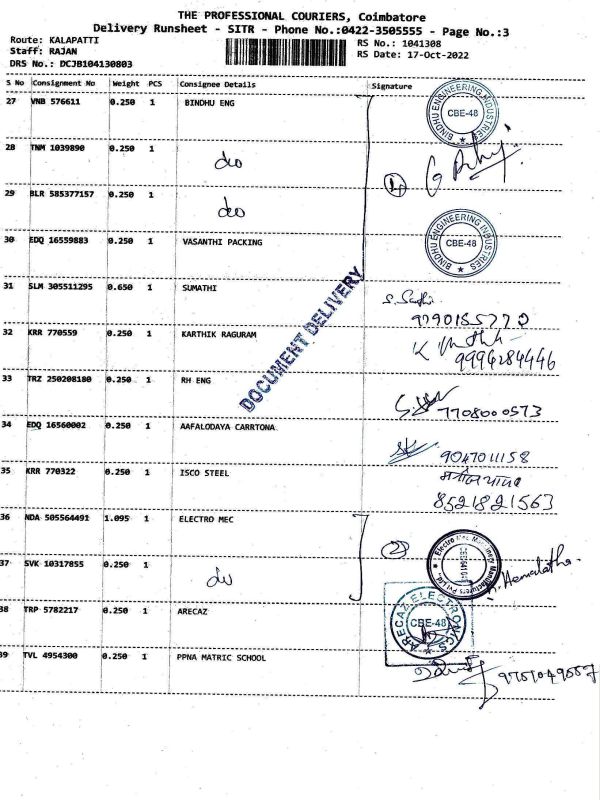 THE PROFESSIONAL COURIERS, Coimbatore
Delivery Runsheet - SITR - Phone No.:0422-3505555 - Page No.:3
Route: KALAPATTI
Staff: RAJAN
DRS No.: DCJB104130803
RS No.: 1041308
RS Date: 17-Oct-2022
S No Consignment No Weight PCS Consignee Details Signature
27 VNB 576611 0.250 1 BINDHU ENG
BINDHU ENGINEERING INDUSTRIES
CBE-48
28 TNM 1039890 0.250 1 do
1
29 BLR 585377157 0.250 1 do
30 EDQ 16559883 0.250 1 VASANTHI PACKING
BINDHU ENGINEERING INDUSTRIES
CBE-48
DOCUMENT DELIVERY
31 SLM 305511295 0.650 1 SUMATHI
9790185770
32 KRR 770559 0.250 1 KARTHIK RAGURAM
9994284446
33 TRZ 250208180 0.250 1 RH ENG
7708000573
34 EDQ 16560002 0.250 1 AAFALODAYA CARRTONA
9047011158
35 KRR 770322 0.250 1 ISCO STEEL
8521821563
36 NDA 505564491 1.095 1 ELECTRO MEC
2
Electro Mec Machinery Manufacturers Pvt Ltd.
37 SVK 10317855 0.250 1 do
Hemalatha
38 TRP 5782217 0.250 1 ARECAZ
ARECAZ ELECTRONICS
CBE-48
39 TVL 4954300 0.250 1 PPNA MATRIC SCHOOL
9751049557